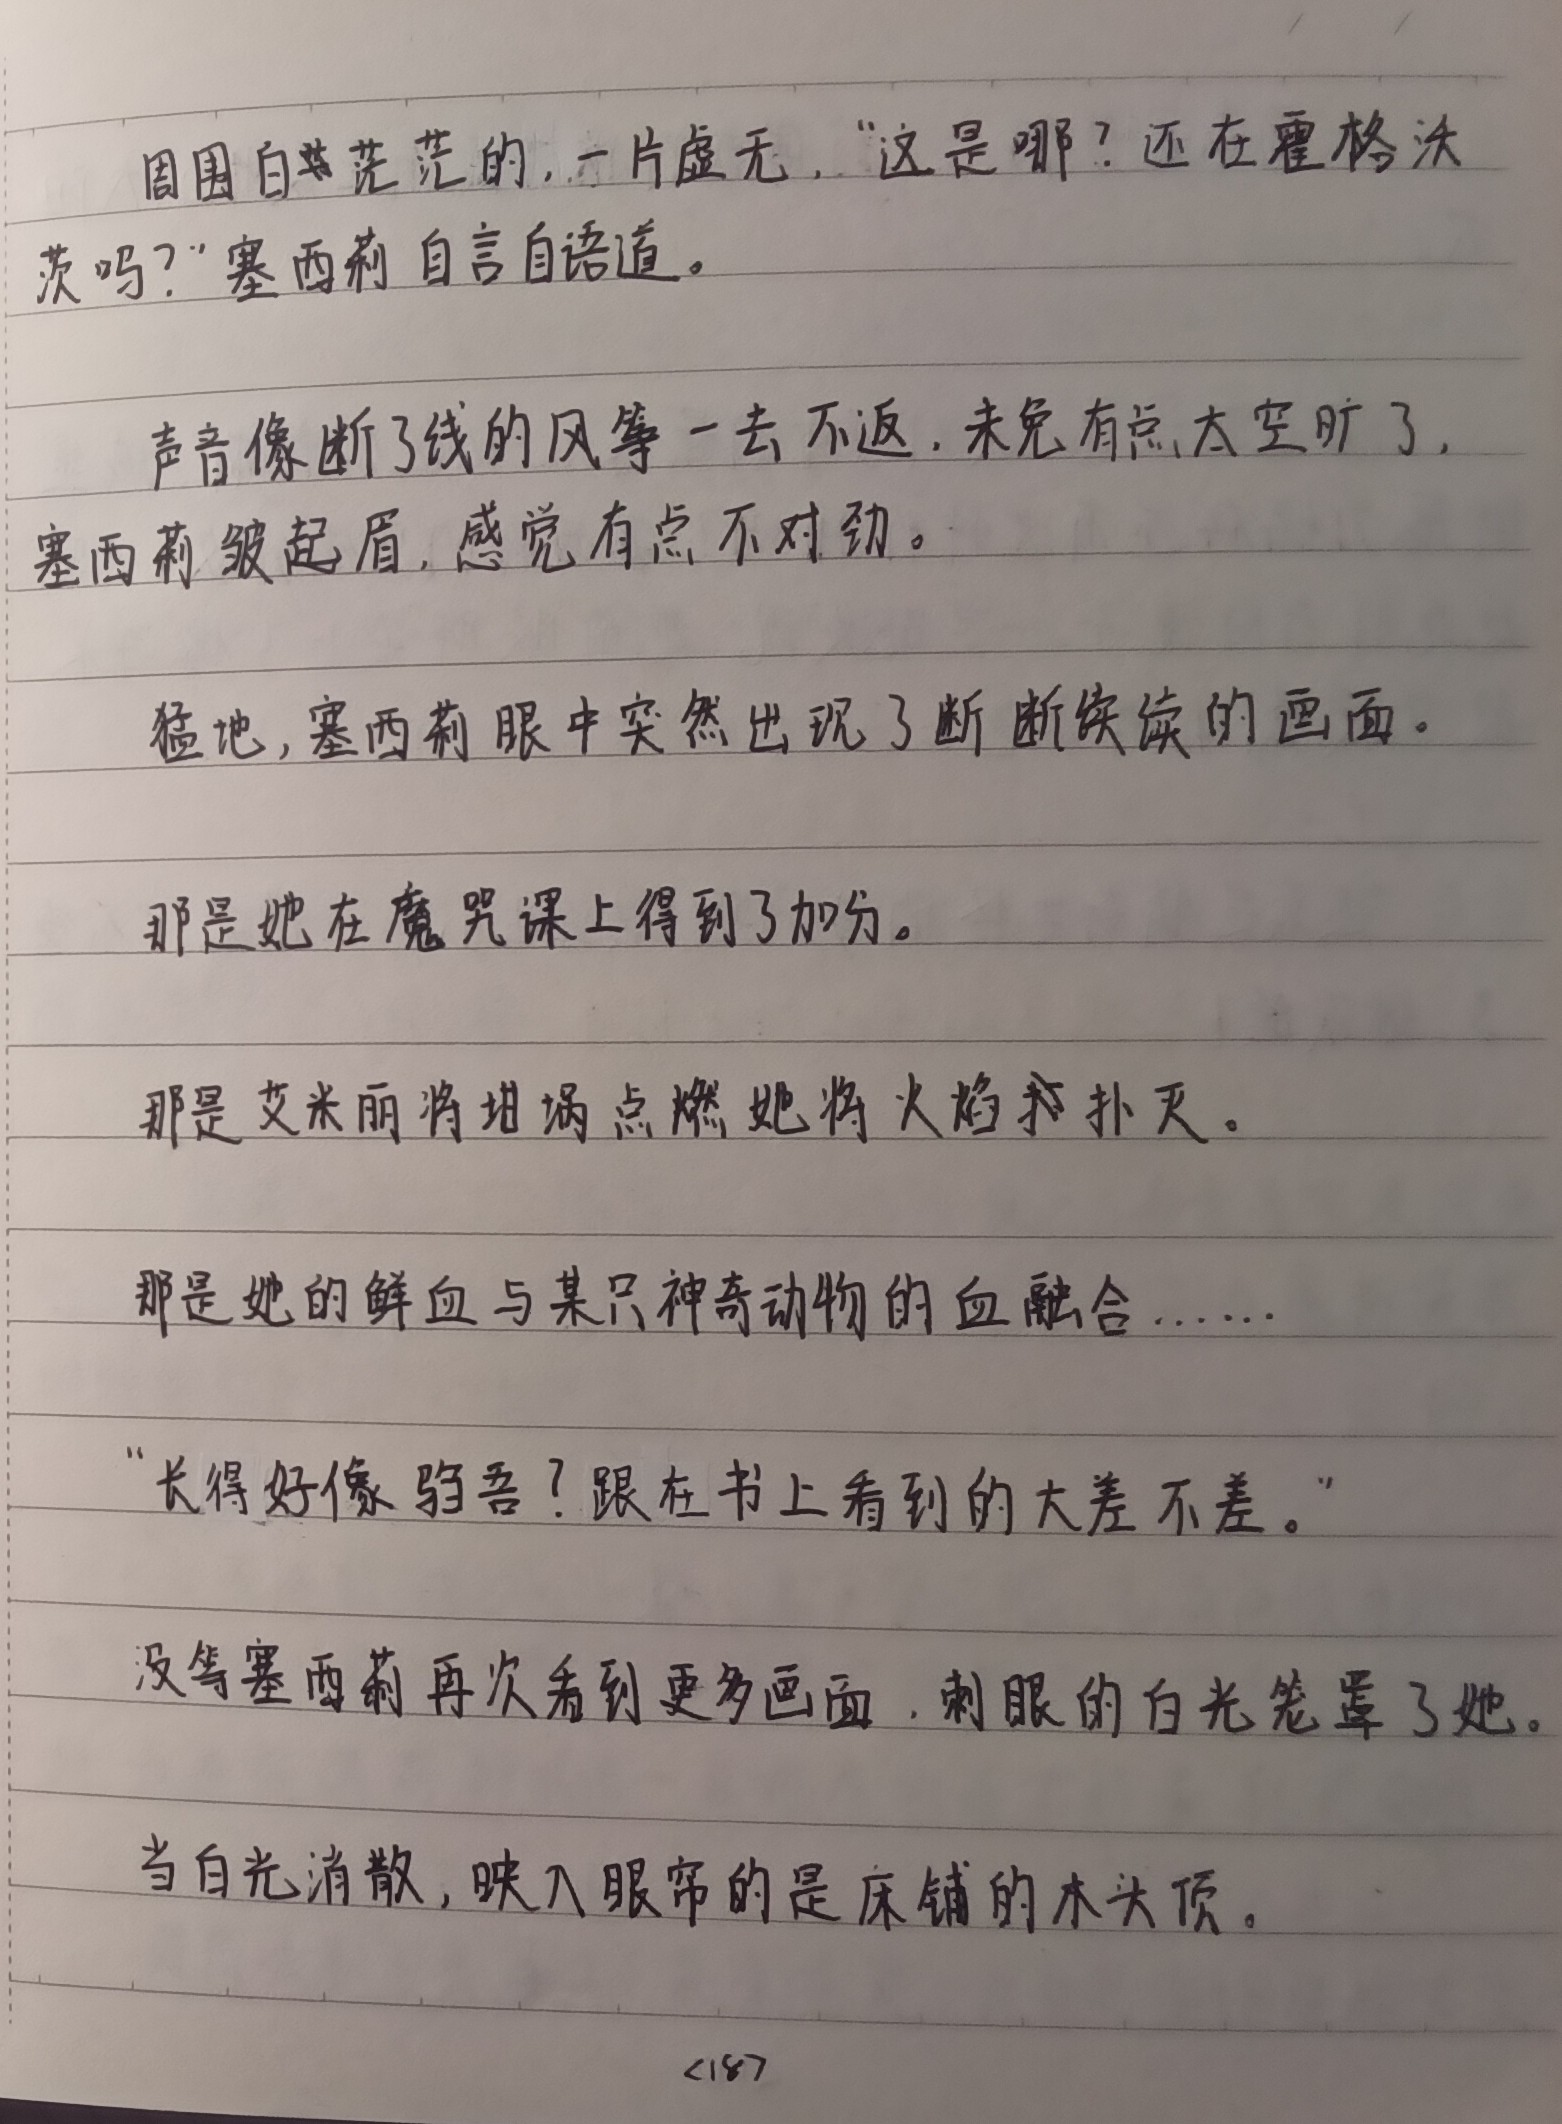 周围白茫茫的，一片虚无，“这是哪？还在霍格沃
茨吗？”塞西莉自言自语道。
声音像断了线的风筝一去不返，未免有点太空旷了，
塞西莉皱起眉，感觉有点不对劲。
猛地，塞西莉眼中突然出现了断断续续的画面。
那是她在魔咒课上得到了加分。
那是艾米丽将坩埚点燃她将火焰扑灭。
那是她的鲜血与某只神奇动物的血融合……
“长得好像驺吾？跟在书上看到的大差不差。”
没等塞西莉再次看到更多画面，刺眼的白光笼罩了她。
当白光消散，映入眼帘的是床铺的木头顶。
<18>